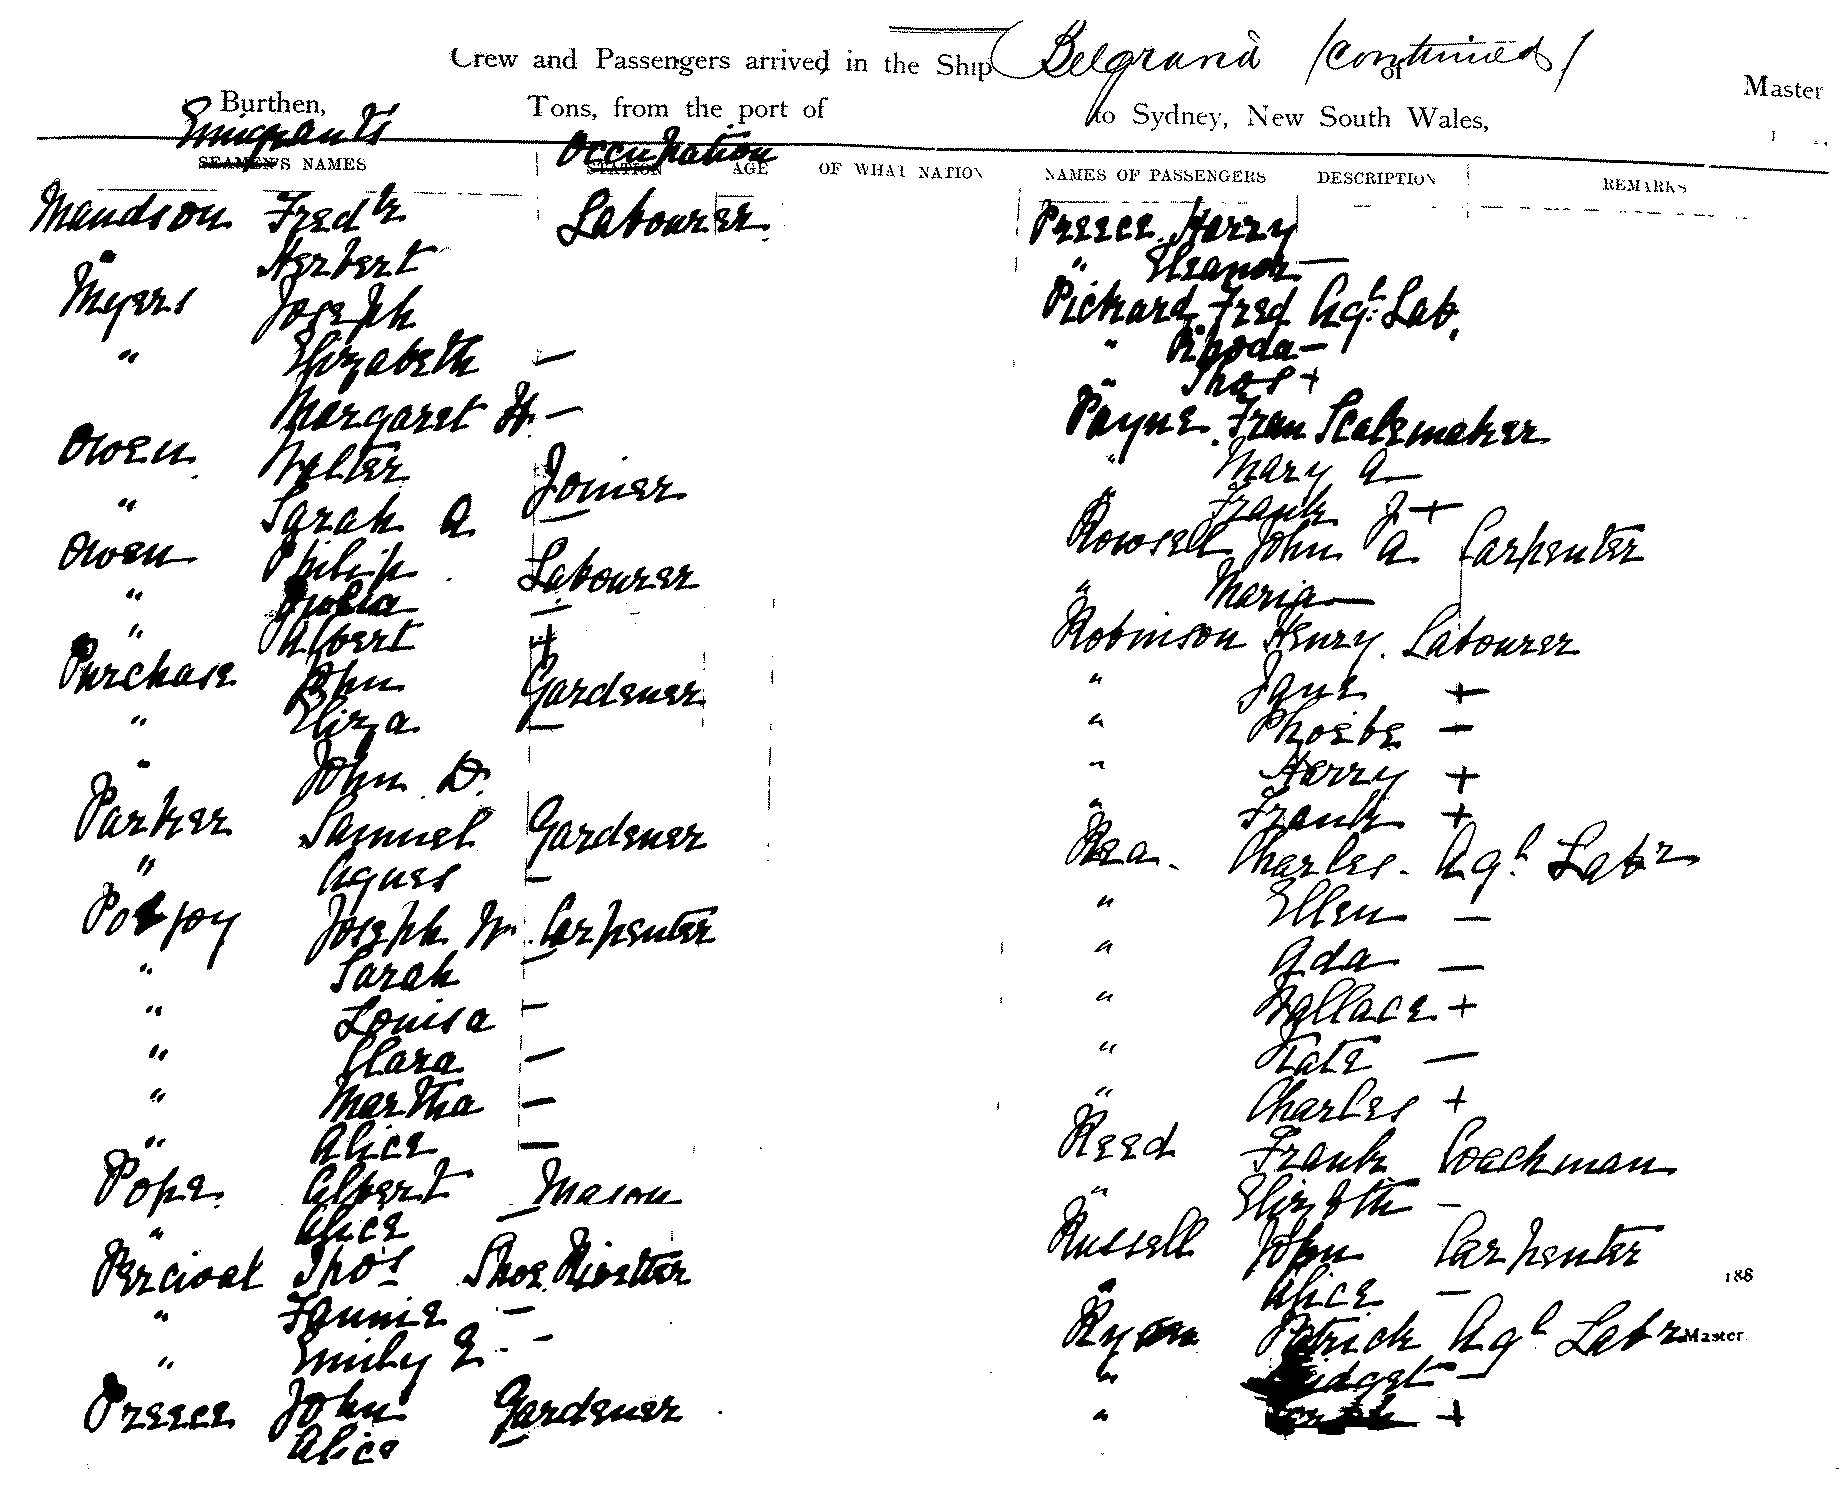 Crew and Passengers arrived in the Ship Belgravia (continued) of Master
Burthen, Tons, from the port of to Sydney, New South Wales,
Emigrants Occupation
SEAMEN'S NAMES STATION AGE OF WHAT NATION NAMES OF PASSENGERS DESCRIPTION REMARKS
Maudson Fredk Labourer
" Herbert
Myers Joseph
" Elizabeth —
Margaret H. —
Owen Walter Joiner
" Sarah A —
Owen Philip Labourer
" Julia —
" Albert +
Purchase John Gardener
" Eliza —
" John D.
Parker Samuel Gardener
" Agnes —
Poljoy Joseph W. Carpenter
" Sarah —
" Louisa —
" Clara —
" Martha —
" Alice —
Pope Albert Mason
" Alice —
Percival Thos Shoe
" Fannie —
" Emily E —
Preece John Gardener
Alice —
Preece Harry
" Eleanor —
Pickard Fred Agl Lab.
" Rhoda —
" Thos +
Payne Fran Scalemaker
" Mary A —
" Frank J +
Rowsell John A Carpenter
" Maria —
Robinson Henry. Labourer
" Jane +
" Phoebe —
" Harry +
" Frank +
Rea. Charles. Agl Labr
" Ellen —
" Ada —
" Wallace +
" Kate —
" Charles +
Reed Frank Coachman
" Elizbth —
Russell John Carpenter
188
" Alice —
Ryan Patrick Agl Labr Master
" Bridget —
" +